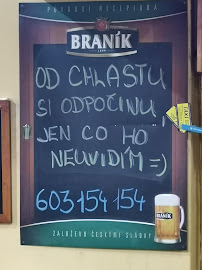 PŮVODNÍ RECEPTURA
BRANÍK
OD CHLASTU
SI ODPOČINU
JEN CO HO
NEUVIDÍM =)
603 154 154
BRANÍK
ZALOŽENO ČESKÝMI SLÁDKY